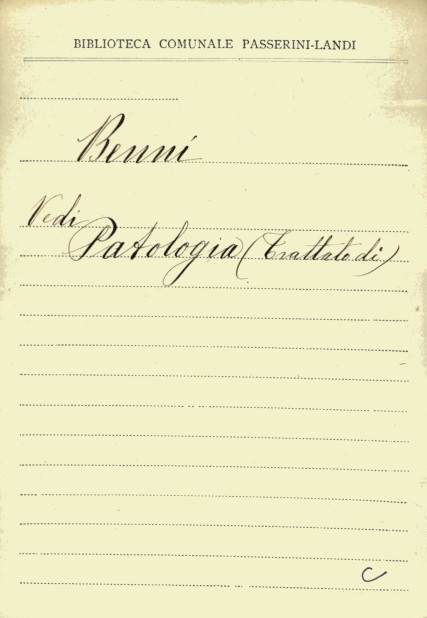 BIBLIOTECA COMUNALE PASSERINI-LANDI
Benni
Vedi
Patologia (Trattato di)
C